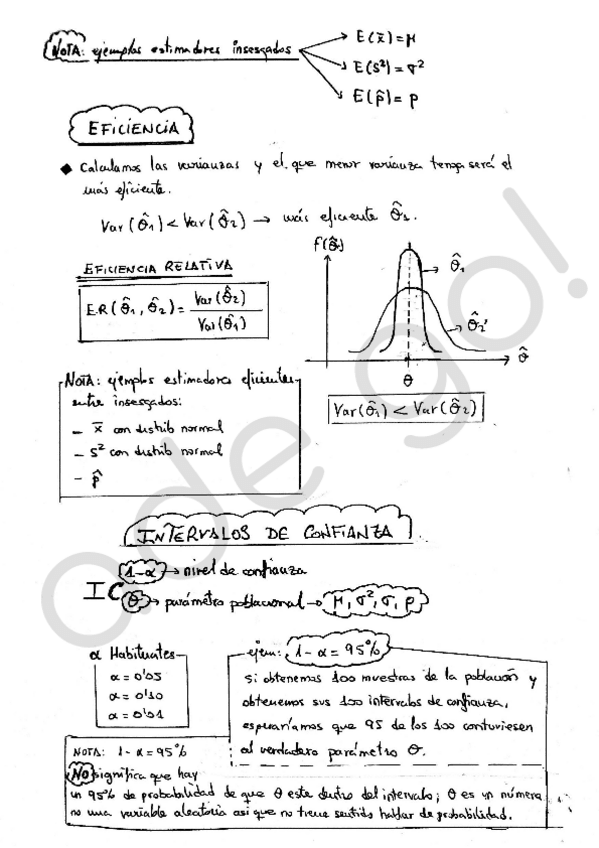 NOTA: ejemplos estimadores insesgados
E(x̄)=μ
E(S²)=σ²
E(p̂)=p
EFICIENCIA
◆ Calculamos las varianzas y el que menor varianza tenga será el
más eficiente.
Var(θ̂1) < Var(θ̂2) → más eficiente θ̂1.
EFICIENCIA RELATIVA
E.R(θ̂1, θ̂2) = Var(θ̂2) / Var(θ̂1)
f(θ̂)
θ̂1
θ̂2
θ̂
θ
Var(θ̂1) < Var(θ̂2)
NOTA: ejemplos estimadores eficientes
entre insesgados:
- x̄ con distrib normal
- S² con distrib normal
- p̂
INTERVALOS DE CONFIANZA
IC
1-α → nivel de confianza
θ → parámetro poblacional → μ, σ², σ, p
α Habituales
α = 0'05
α = 0'10
α = 0'01
ejem: 1-α = 95%
si obtenemos 100 muestras de la población y
obtenemos sus 100 intervalos de confianza,
esperaríamos que 95 de los 100 contuviesen
al verdadero parámetro θ.
NOTA: 1-α = 95%
NO significa que hay
un 95% de probabilidad de que θ este dentro del intervalo; θ es un número
no una variable aleatoria asi que no tiene sentido hablar de probabilidad.
ade go!